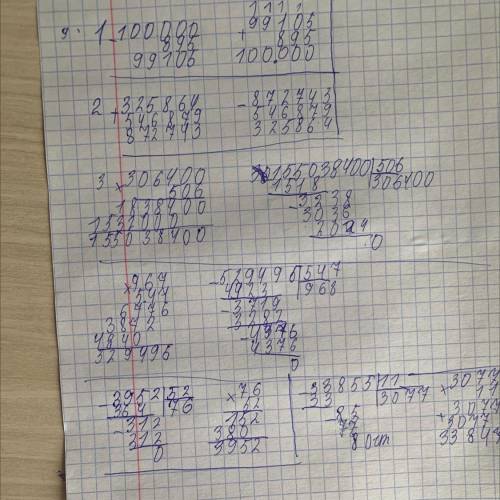 9. 1 100000
895
99105
1111
99105
+ 895
100.000
2 +325864
546879
872743
-872743
546879
325864
3 ×306400
506
1838400
1532000
155038400
155038400|506
1518 306400
-3238
3036
2024
0
×967
544
6776
3872
4840
329496
-529496|547
4923 968
-3719
3282
-4376
4376
0
-3952|52
364 76
-312
312
0
×76
52
152
380
3952
-33855|11
33 3077
-85
77
8 ост
×3077
11
+3077
3077
33847